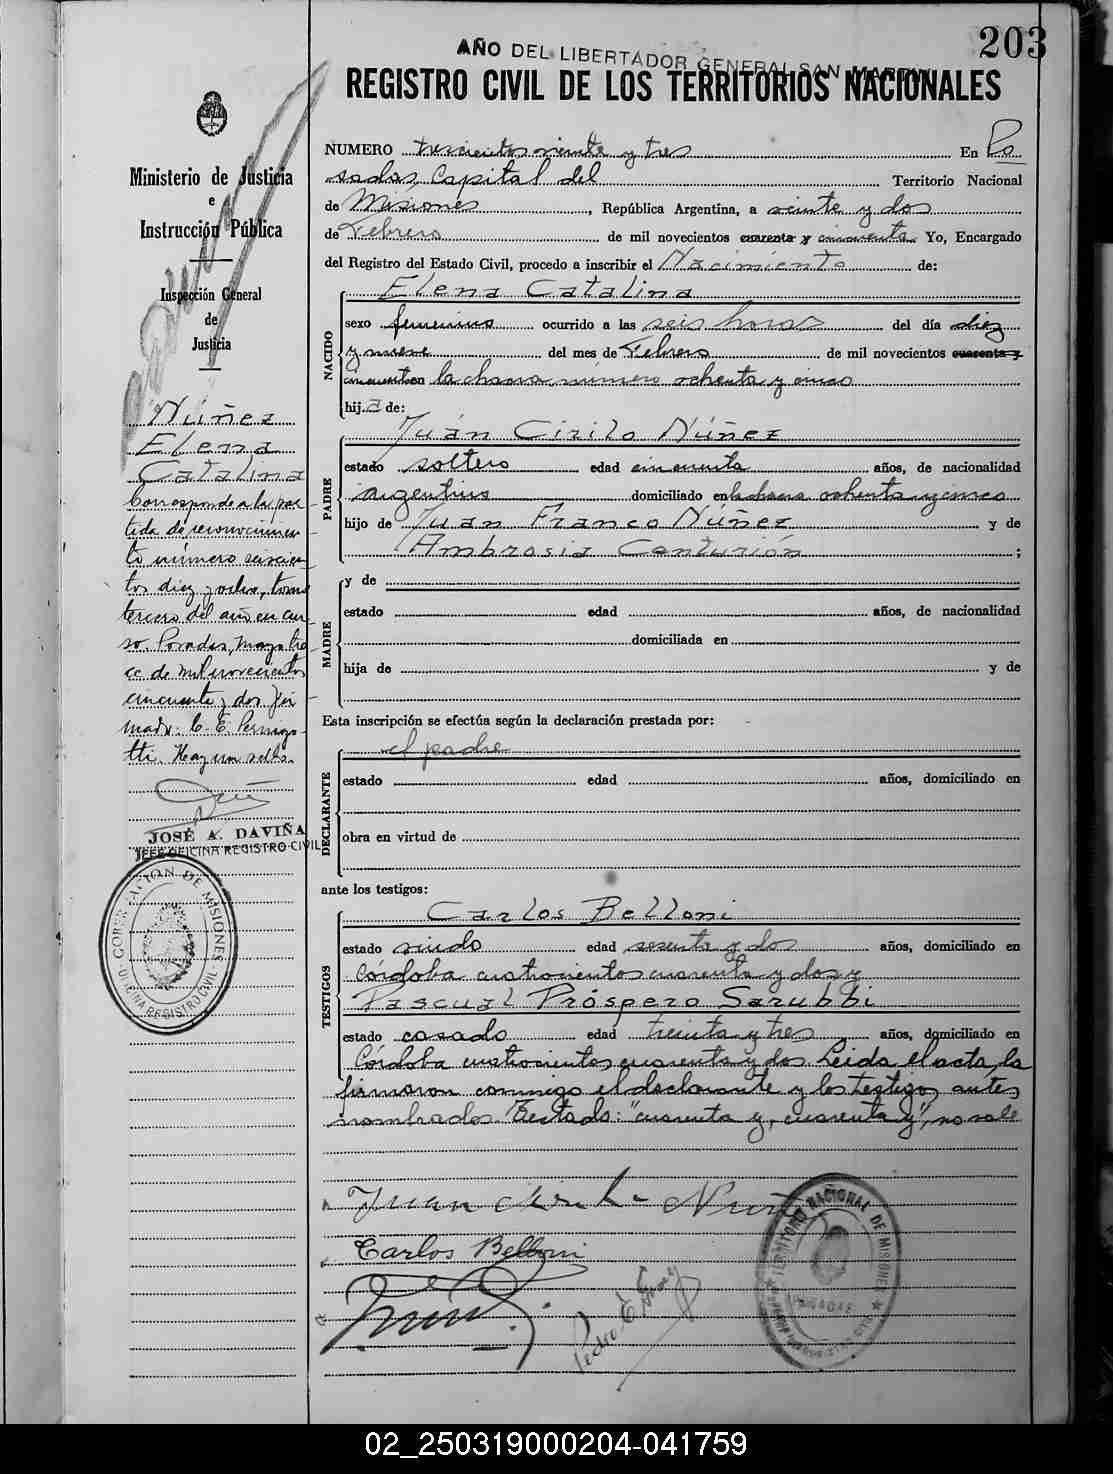 203
AÑO DEL LIBERTADOR GENERAL SAN MARTIN
REGISTRO CIVIL DE LOS TERRITORIOS NACIONALES
Ministerio de Justicia
e
Instrucción Pública
Inspección General
de
Justicia
Núñez
Elena
Catalina
Corresponde a la par-
tida de reconocimien-
to número seiscien-
tos diez y ocho, tomo
tercero del año en cur-
so. Posadas, mayo tre-
ce de mil novecientos
cincuenta y dos. Fir-
mado. C. E. Pernigo-
tti. Hay un sello.
JOSÉ A. DAVIÑA
JEFE OFICINA REGISTRO CIVIL
GOBERNACION DE MISIONES
OFICINA REGISTRO CIVIL
NUMERO trescientos veinte y tres En Po
sadas, Capital del Territorio Nacional
de Misiones, República Argentina, a veinte y dos
de Febrero de mil novecientos cuarenta y cincuenta. Yo, Encargado
del Registro del Estado Civil, procedo a inscribir el Nacimiento de:
NACIDO
Elena Catalina
sexo femenino ocurrido a las seis horas del día diez
y nueve del mes de Febrero de mil novecientos cuarenta y
cincuenta en la chacra número ochenta y cinco
hij a de:
PADRE
Juán Cirilo Núñez
estado soltero edad cincuenta años, de nacionalidad
argentino domiciliado en la chacra ochenta y cinco
hijo de Juán Franco Núñez y de
Ambrosia Centurión;
MADRE
y de
estado edad años, de nacionalidad
domiciliada en
hija de y de
Esta inscripción se efectúa según la declaración prestada por:
DECLARANTE
el padre
estado edad años, domiciliado en
obra en virtud de
ante los testigos:
TESTIGOS
Carlos Belloni
estado viudo edad sesenta y dos años, domiciliado en
Córdoba cuatrocientos cuarenta y dos y
Pascual Próspero Sarubbi
estado casado edad treinta y tres años, domiciliado en
Córdoba cuatrocientos cuarenta y dos. Leida el acta, la
firmaron conmigo el declarante y los testigos antes
nombrados. Testado: "cuarenta y, cuarenta y", no vale
Juan Cirilo Nuñ
Carlos Belloni
TERRITORIO NACIONAL DE MISIONES
POSADAS
02_250319000204-041759